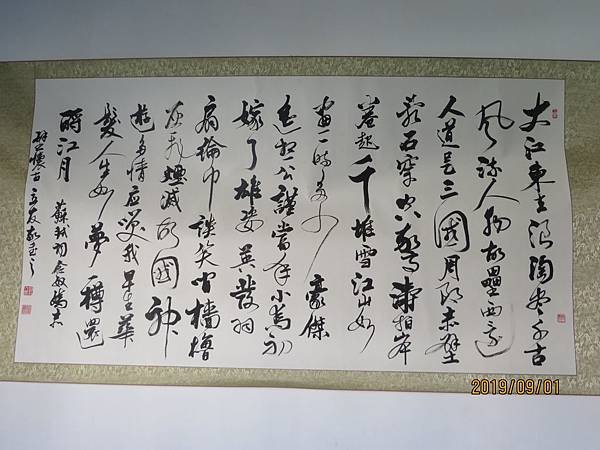 大江東去浪淘盡千古
風流人物故壘西邊
人道是三國周郎赤壁
亂石穿空驚濤拍岸
卷起千堆雪江山如
畫一時多少豪傑
遙想公瑾當年小喬初
嫁了雄姿英發羽
扇綸巾談笑間檣櫓
灰飛煙滅故國神
遊多情應笑我早生華
髮人生如夢一樽還
酹江月
蘇軾詞念奴嬌赤
壁懷古
2019/09/01